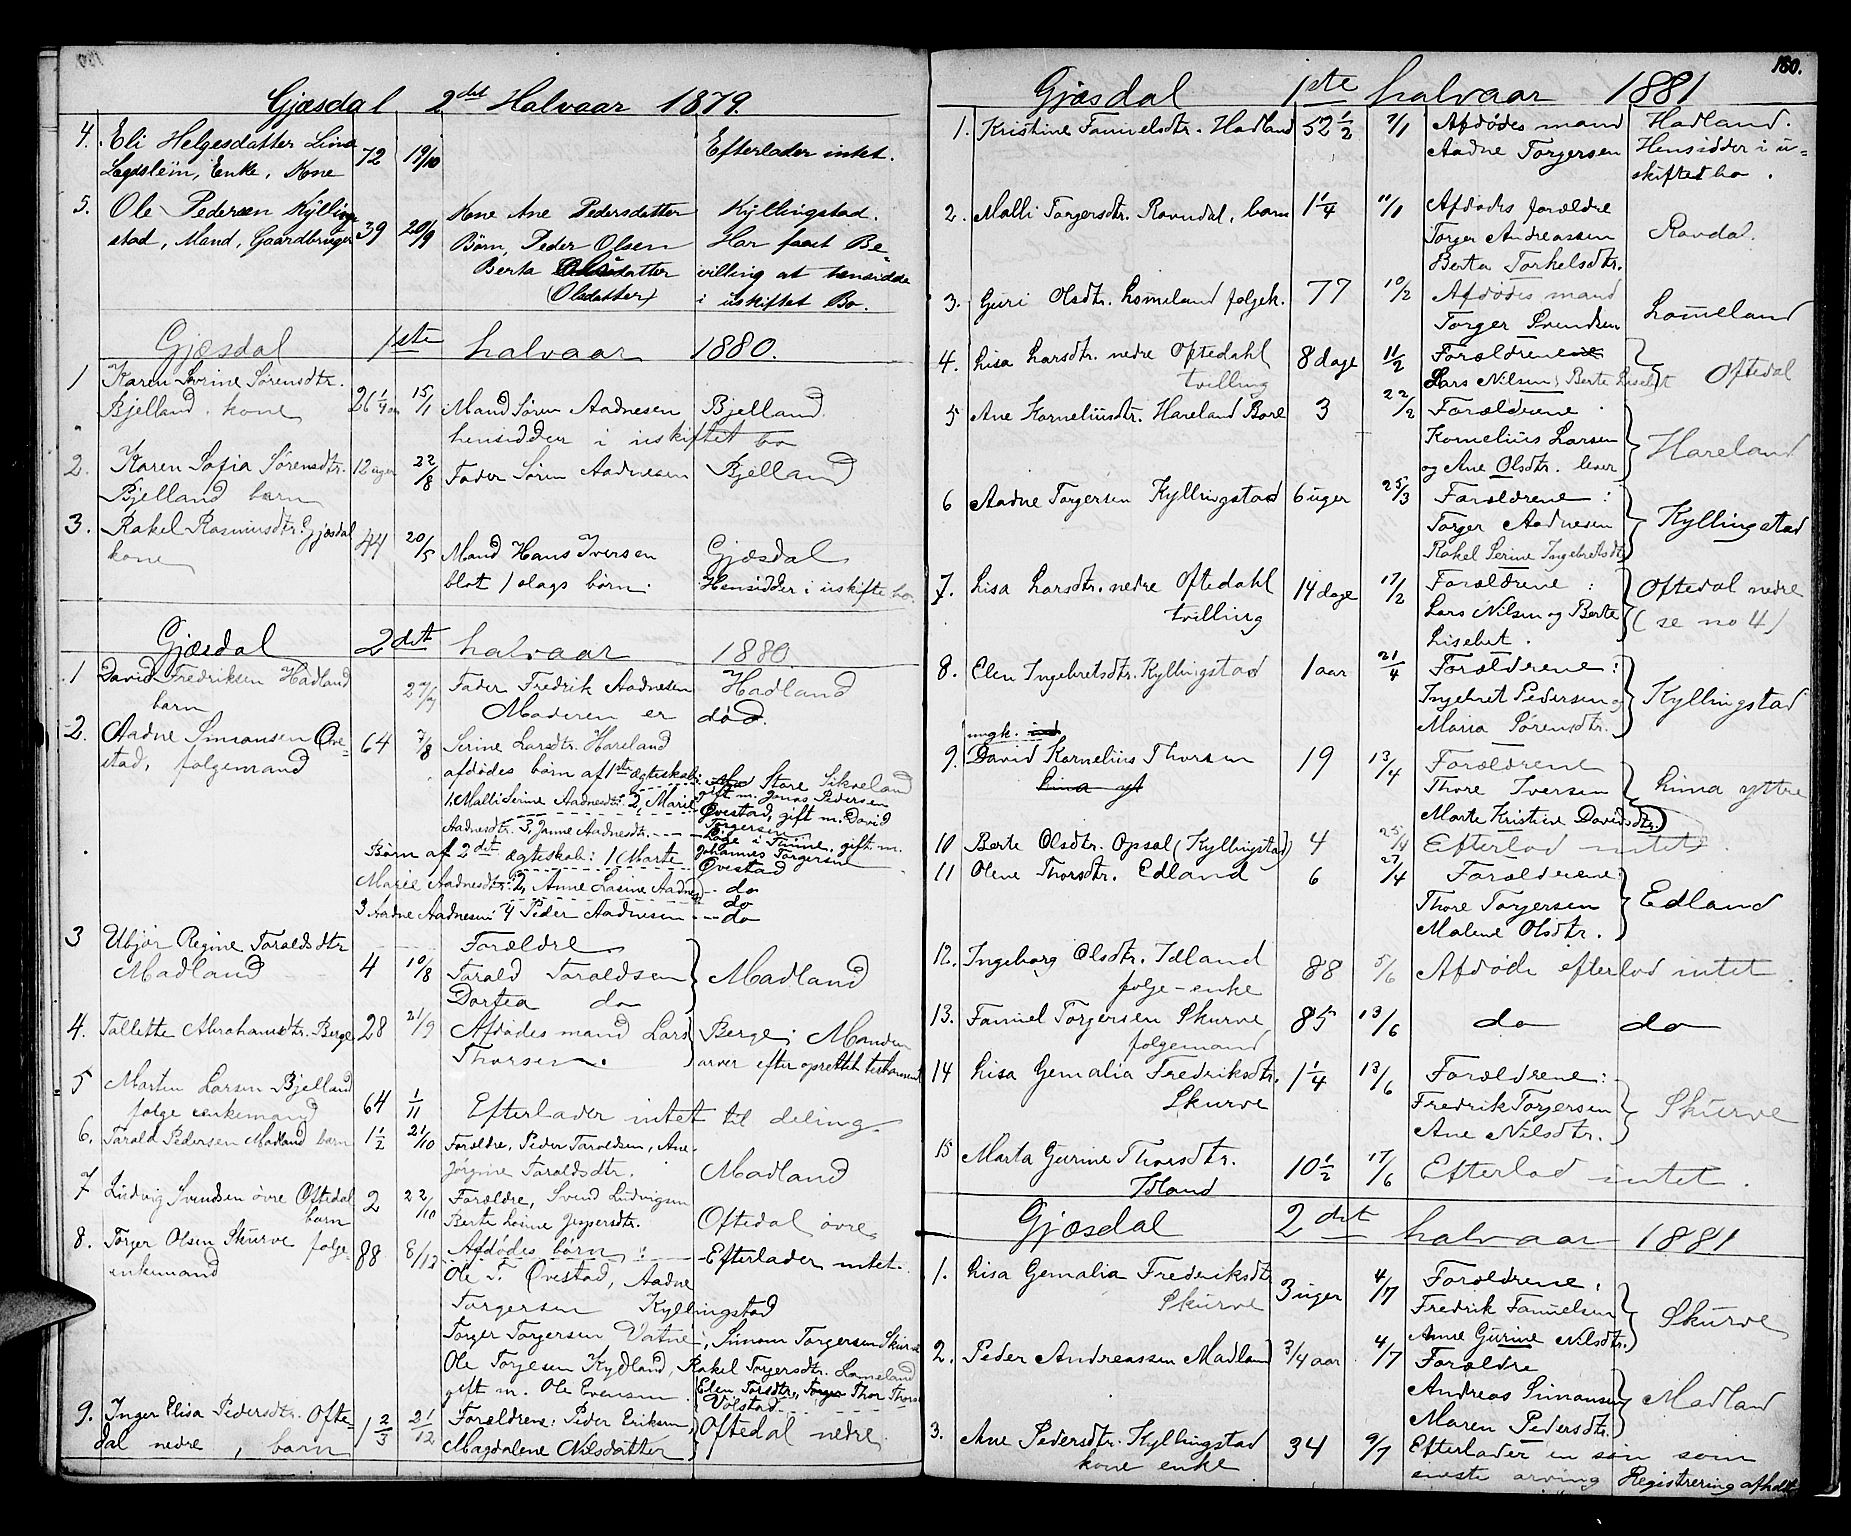 Gjæsdal 2det Halvaar 1879.
4. Eli Helgesdatter Lima 72 19/10 Efterlader intet.
Enke, Kone
5. Ole Pedersen Kylling 39 20/9 Kone Ane Pedersdatter Kyllingstad.
stad, Mand, Gaardbruger Børn, Peder Olsen Har faaet Be-
Berta Olsdatter villing at hensidde
(Olsdatter) i uskiftet Bo.
Gjæsdal 1ste halvaar 1880.
1 Karen Serine Sørensdtr. 26 1/4 aar 15/1 Mand Søren Aadnesen Bjelland.
Bjelland. kone hensidder i uskiftet bo
2. Karen Sofia Sørensdtr. 12 uger 22/8 Fader Søren Aadnesen Bjelland
Bjelland barn
3. Rakel Rasmusdtr. Gjæsdal 44 20/5 Mand Hans Iversen Gjæsdal
kone blot 1 slags børn. Hensidder i uskifte bo.
Gjæsdal 2det halvaar 1880
1 David Fredriksen Hadland 27/7 Fader Fredrik Aadnesen Hadland
barn Moderen er død.
2. Aadne Simonsen Øve- 64 7/8 Serine Larsdtr. Hareland
stad, folgemand afdødes børn af 1ste ægteskab: Store Sikveland
1, Malli Serine Aadnesdtr. 2, Marie gift m. Jonas Pedersen
Øvestad, gift m. David
Aadnesdtr. 3, Janne Aadnesdtr. Torgersen
Lige i Time, gift m.
Børn af 2det ægteskab: 1 (Marte Johannes Torgersen
Øvestad
Marie Aadnesdtr. 2, Anne Lasine Aadnes do
do
3. Aadne Aadnesen 4 Peder Aadnesen do
3 Ubjør Regine Taraldsdtr 4 10/8 Forældre
Madland Tarald Taraldsen Madland
Dortea do
4. Tallette Abrahamsdtr. Berge 28 21/9 Afdødes mand Lars Berge; Manden
Thorsen. arver efter oprettet testament
5 Marten Larsen Bjelland 64 1/11 Efterlader intet til deling.
folge enkemand
6. Tarald Pedersen Madland barn 1 1/2 21/10 Forældre, Peder Taraldsen, Ane
Jørgine Taraldsdtr. Madland
7 Ludvig Svendsen øvre Oftedal 2 22/10 Forældre, Svend Ludvigsen
barn Berte Jespersdtr. Oftedal øvre
8. Torger Olsen Skurve folge 88 8/12 Afdødes børn: Efterlader intet.
enkemand Ole T. Øvestad, Aadne
Torgersen Kyllingstad
Torger Torgersen Vatne, Simon Torgersen Skurve
Ole Torgersen Kydland, Rakel Torgersdtr. Lomeland
gift m. Ole Evensen Thor
9. Inger Elisa Pedersdtr. Ofte- 1 2/3 21/12 Forældrene: Peder Eriksen, Oftedal nedre
dal nedre, barn Magdalene Nilsdatter
180.
Gjæsdal 1ste halvaar 1881
1. Kristine Tønnelsdtr. Hadland 52 1/2 7/1 Afdødes mand Hadland.
Aadne Torgersen Hensidder i u-
skiftet bo.
2. Malli Torgersdtr. Ravndal, barn 1 1/4 11/1 Afdødes forældre
Torger Andreassen Ravdal.
Berta Torkelsdtr.
3. Guri Olsdtr. Lomeland folgek. 77 10/2 Afdødes mand
Torger Svendsen Lomeland
4. Lisa Larsdtr. nedre Oftedahl 8 dage 11/2 Forældrene
tvilling Lars Nilsen, Berte Lisebet Oftedal
5 Ane Korneliusdtr. Hareland 3 22/2 Forældrene
Kornelius Larsen
og Ane Olsdtr. lever Hareland
6 Aadne Torgersen Kyllingstad 6 uger 25/3 Forældrene:
Torger Aadnesen Kyllingstad
Rakel Serine Ingebretsdtr
7. Lisa Larsdtr. nedre Oftedahl 14 dage 17/2 Forældrene: Oftedal nedre
tvilling Lars Nilsen og Berte (se no 4)
Lisebet.
8. Elen Ingebretsdtr. Kyllingstad 1 aar 21/4 Forældrene:
Ingebret Pedersen og Kyllingstad
Maria Sørensdtr.
ungk.
9. David Kornelius Thorsen 19 13/4 Forældrene
Lima yt Thore Iversen Lima yttre
Marte Kristine Davidsdtr.
10 Berte Olsdtr. Opsal (Kyllingstad) 4 25/4 Efterlod intet.
11 Olene Thorsdtr. Edland 6 27/4 Forældrene:
Thore Torgersen Edland
Malene Olsdtr.
12. Ingeborg Olsdtr. Idland 88 5/6 Afdøde efterlod intet
folge-enke
13. Tønnel Torgersen Skurve 85 13/6 do do
folgemand
14 Lisa Gemalia Fredriksdtr. 1 1/4 13/6 Forældrene:
Skurve Fredrik Torgersen Skurve
Ane Nilsdtr.
15 Marta Gurine Thorsdtr. 10 1/2 17/6 Efterlod intet.
Idland
Gjæsdal 2det halvaar 1881
1. Lisa Gemalia Frederiksdtr 3 uger 4/7 Forældrene:
Skurve Fredrik Tønnelsen Skurve
Anne Gurine Nilsdtr.
2. Peder Andreassen Madland 3/4 aar 4/7 Forældre
Andreas Simonsen Madland
Maren Pedersdtr.
3. Ane Pedersdtr. Kyllingstad 34 9/7 Efterlader en søn som
kone enke eneste arving Registrering afholdt